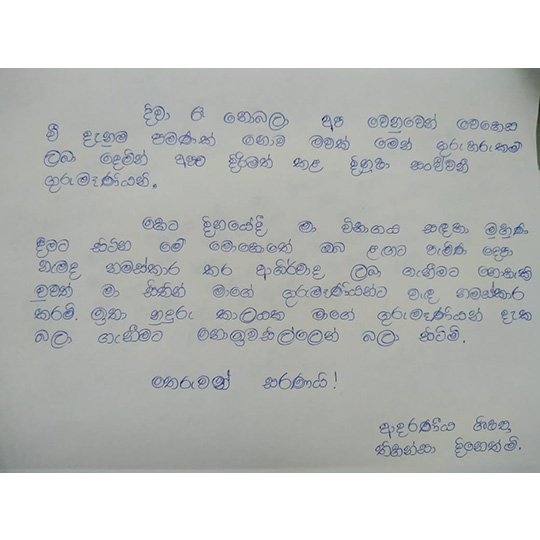 දිවා රෑ නොබලා අප වෙනුවෙන් වෙහෙස
වී දැනුම පමණක් නොව මවක් මෙන් ගුරුහරුකම්
ලබා දෙමින් අපව දිරිමත් කළ දිනූෂා සංජීවනී
ගුරුමෑණියනි.
හෙට දිනයේදී මා විභාගය සඳහා මුහුණ
දීමට සිටින මේ මොහොතේ ඔබ ළඟට පැමිණ දෙපා
නැමද නමස්කාර කර ආශිර්වාද ලබා ගැනීමට නොහැකි
වුවත් මා සිතින් මාගේ ගුරුමෑණියන්ට වැඳ නමස්කාර
කරමි. ඉතා නුදුරු කාලයක මාගේ ගුරුමෑණියන් දැක
බලා ගැනීමට නොඉවසිල්ලෙන් බලා සිටිමි.
තෙරුවන් සරණයි!
ආදරණීය ශිෂ්‍ය
දිනෙත්මි.